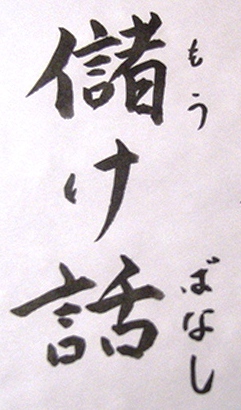 儲け話
もう ばなし